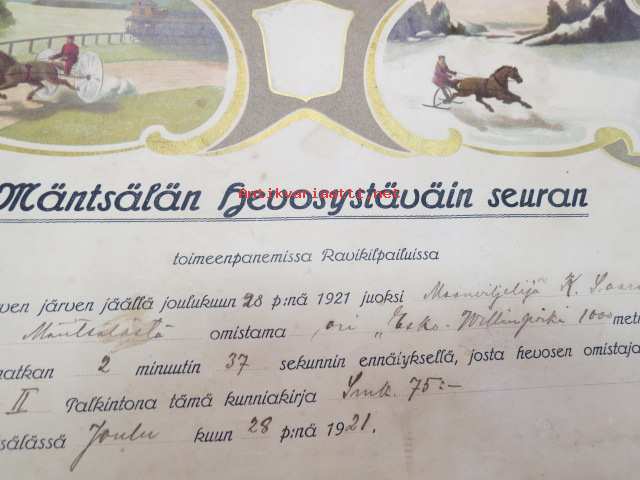 Mäntsälän Hevosystäväin seuran
Antikvariaatti.net
toimeenpanemissa Ravikilpailuissa
ven järven jäällä joulukuun 28 p:nä 1921 juoksi Maanviljelijä K. Saari
Mäntsälästä omistama ori „Esko-Villinpoika 1000 met
matkan 2 minuutin 37 sekunnin ennäiyksellä, josta hevosen omistaja
II Palkintona tämä kunniakirja Smk. 75:-
sälässä Joulu kuun 28 p:nä 1921.